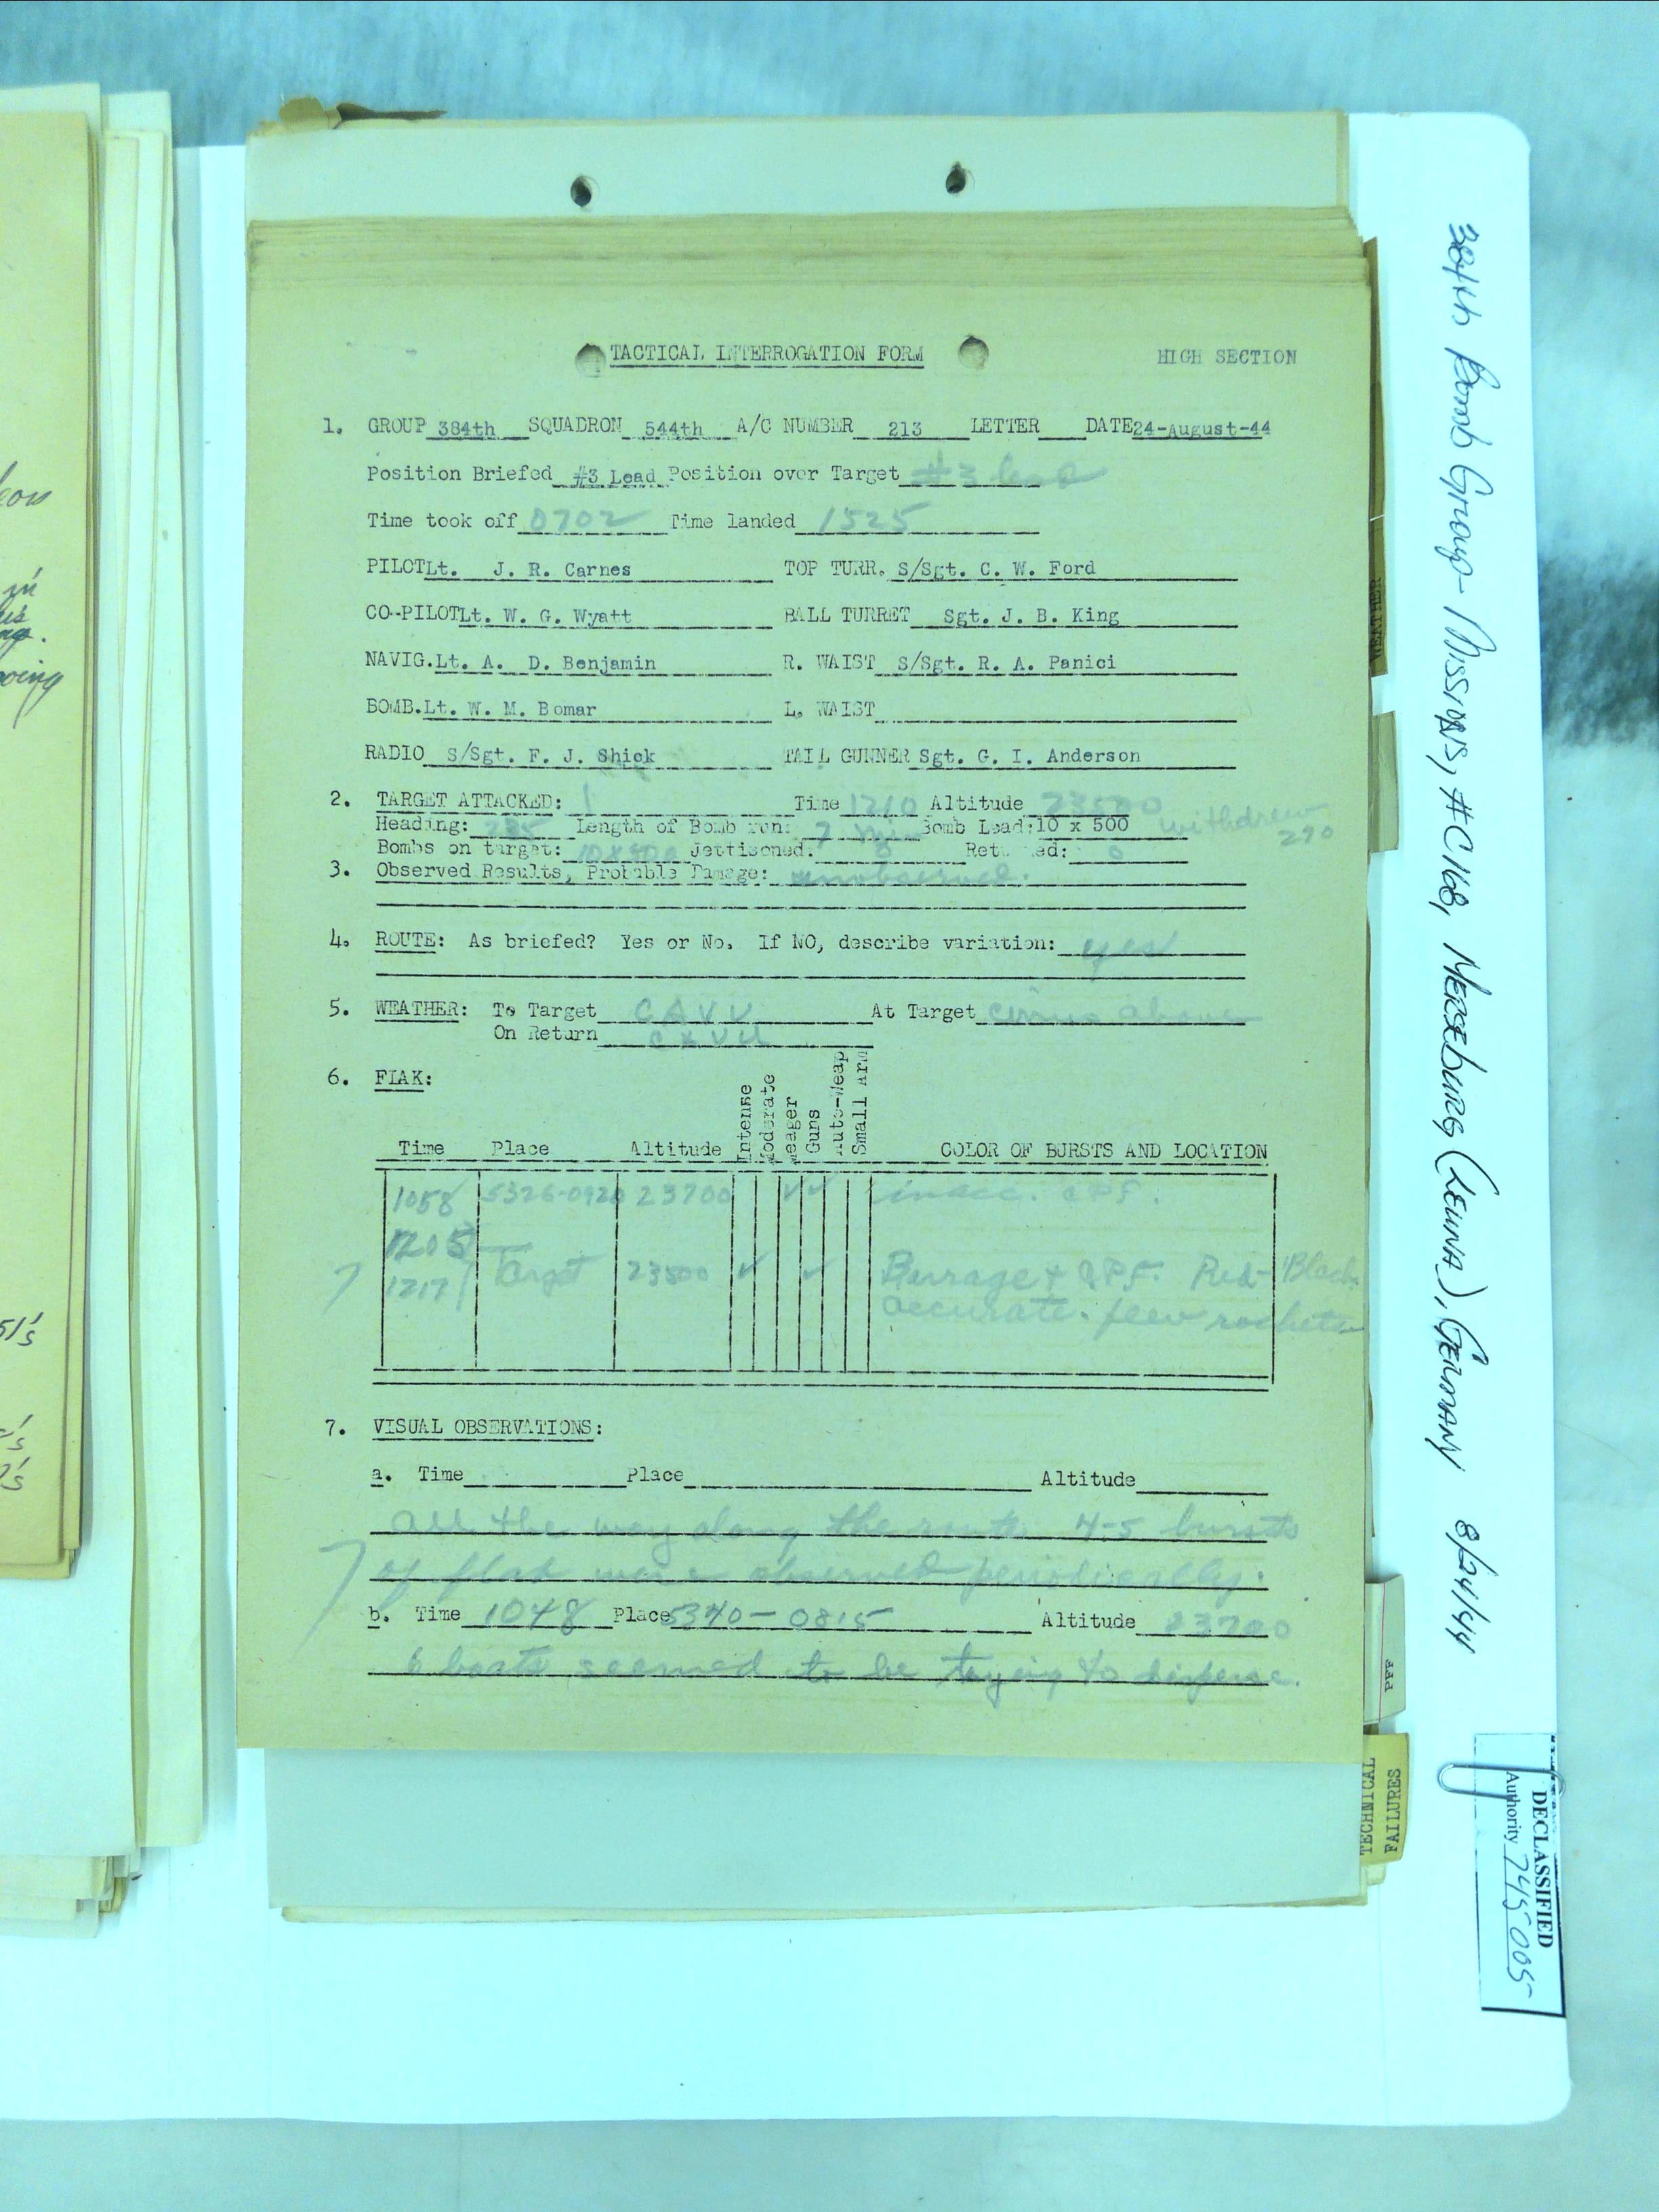 TACTICAL INTERROGATION FORM HIGH SECTION
1. GROUP 384th SQUADRON 544th A/C NUMBER 213 LETTER DATE 24-August-44
Position Briefed #3 Lead Position over Target #3 lead
Time took off 0702 Time landed 1525
PILOT Lt. J. R. Carnes TOP TURR. S/Sgt. C. W. Ford
CO-PILOT Lt. W. G. Wyatt BALL TURRET Sgt. J. B. King
NAVIG. Lt. A. D. Benjamin R. WAIST S/Sgt. R. A. Panici
BOMB. Lt. W. M. Bomar L. WAIST
RADIO S/Sgt. F. J. Shick TAIL GUNNER Sgt. G. I. Anderson
2. TARGET ATTACKED: 1 Time 1210 Altitude 23500
Heading: 285 Length of Bomb run: 7 min Bomb Load: 10 x 500 withdrew
290
Bombs on target: 10x500 Jettisoned: 0 Returned: 0
3. Observed Results, Probable Damage: unobserved.
4. ROUTE: As briefed? Yes or No. If NO, describe variation: yes
5. WEATHER: To Target CAVU At Target cirrus above
On Return CAVU
6. FLAK:
Intense
Moderate
Meager
Guns
Auto-Weap
Small Arm
Time Place Altitude COLOR OF BURSTS AND LOCATION
1058 5326-0920 23700 ✓ ✓ inacc. CPF.
1205
1217 Target 23500 ✓ ✓ Barrage & CPF. Red-Black
accurate. few rockets
7. VISUAL OBSERVATIONS:
a. Time Place Altitude
all the way along the route 4-5 bursts
of flak were observed periodically.
b. Time 1048 Place 5340-0815 Altitude 23700
6 boats seemed to be trying to disperse.
384th Bomb Group - Missions, #C168, Merseburg (Leuna), Germany 8/24/44
WEATHER
PFF
TECHNICAL
FAILURES
DECLASSIFIED
Authority 745005